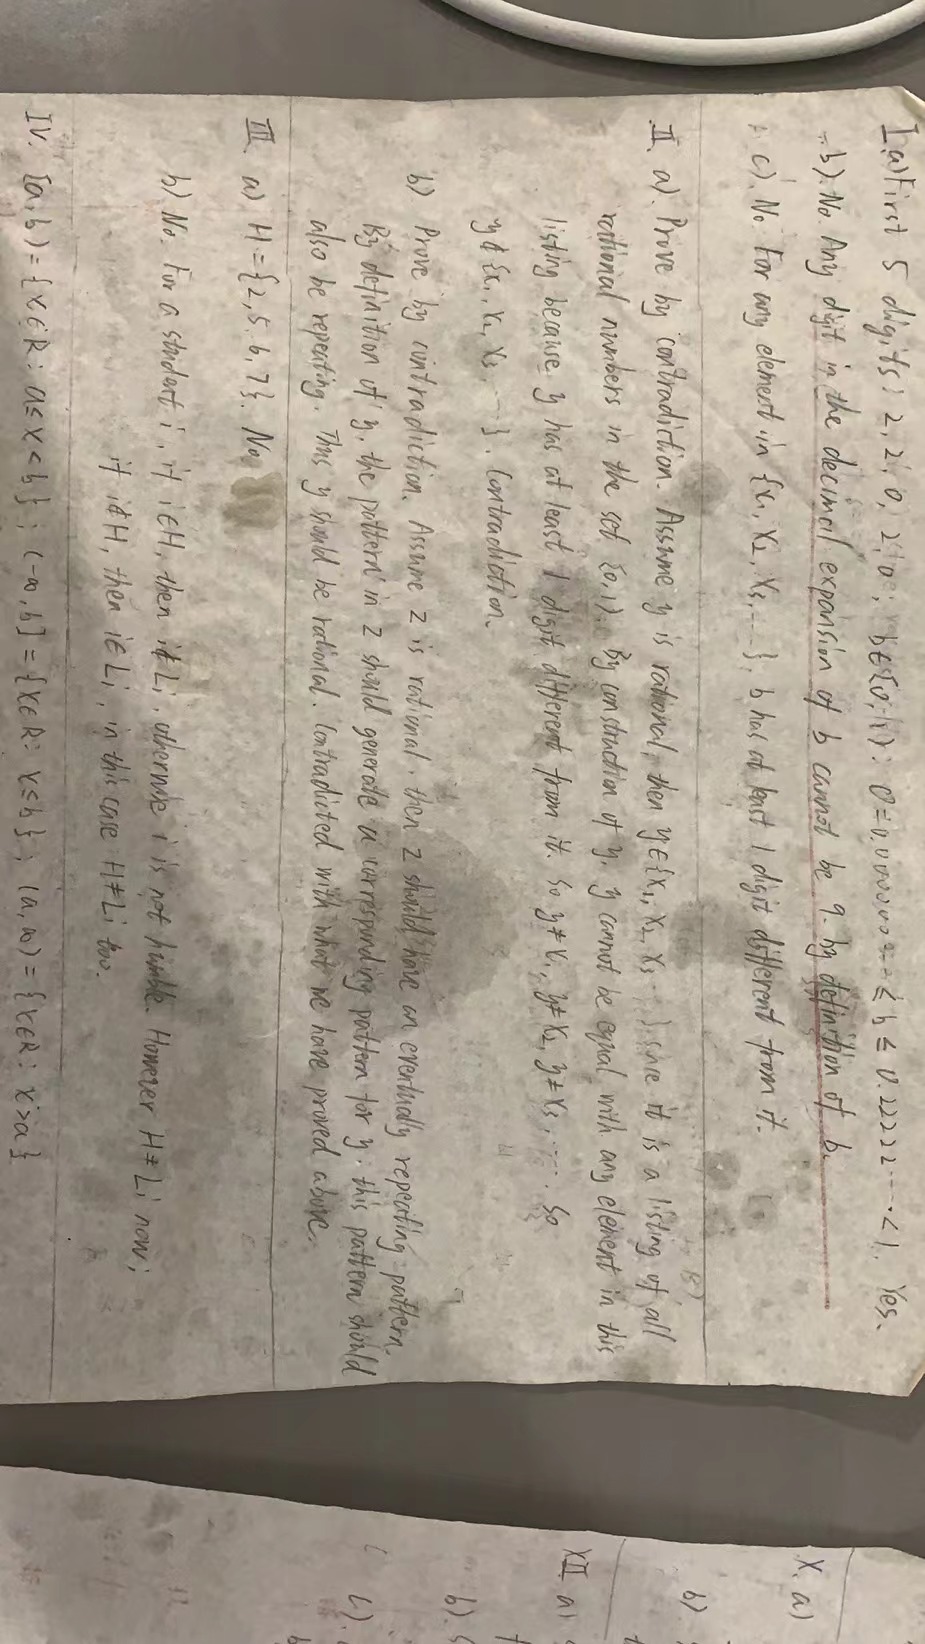 I.a) First 5 digits: 2, 2, 0, 2, 0; b∈[0,1): 0=0.000000... ≤ b ≤ 0.22222...... <1. Yes.
b). No. Any digit in the decimal expansion of b cannot be 9. by definition of b.
c). No. For any element in {x₁, x₂, x₃, ...}, b has at least 1 digit different from it.
II. a). Prove by contradiction. Assume y is rational, then y∈{x₁, x₂, x₃ ...} since it is a listing of all
rational numbers in the set [0,1). By construction of y, y cannot be equal with any element in this
listing because y has at least 1 digit different from it. So y≠x₁, y≠x₂, y≠x₃, ...... So
y∉{x₁, x₂, x₃, ...}. Contradiction.
b) Prove by contradiction. Assume z is rational, then z should have an eventually repeating pattern.
By definition of y, the pattern in z should generate a corresponding pattern for y. this pattern should
also be repeating. Thus y should be rational. Contradicted with what we have proved above.
III. a) H={2,5,6,7}. No.
b) No. For a student i, if i∈H, then i∉Li, otherwise i is not humble. However H≠Li now;
if i∉H, then i∈Li, in this case H≠Li too.
IV. [a,b)={x∈R: a≤x<b}; (-∞,b]={x∈R: x≤b}; (a,∞)={x∈R: x>a}
X. a)
b)
XII a)
b).
c).